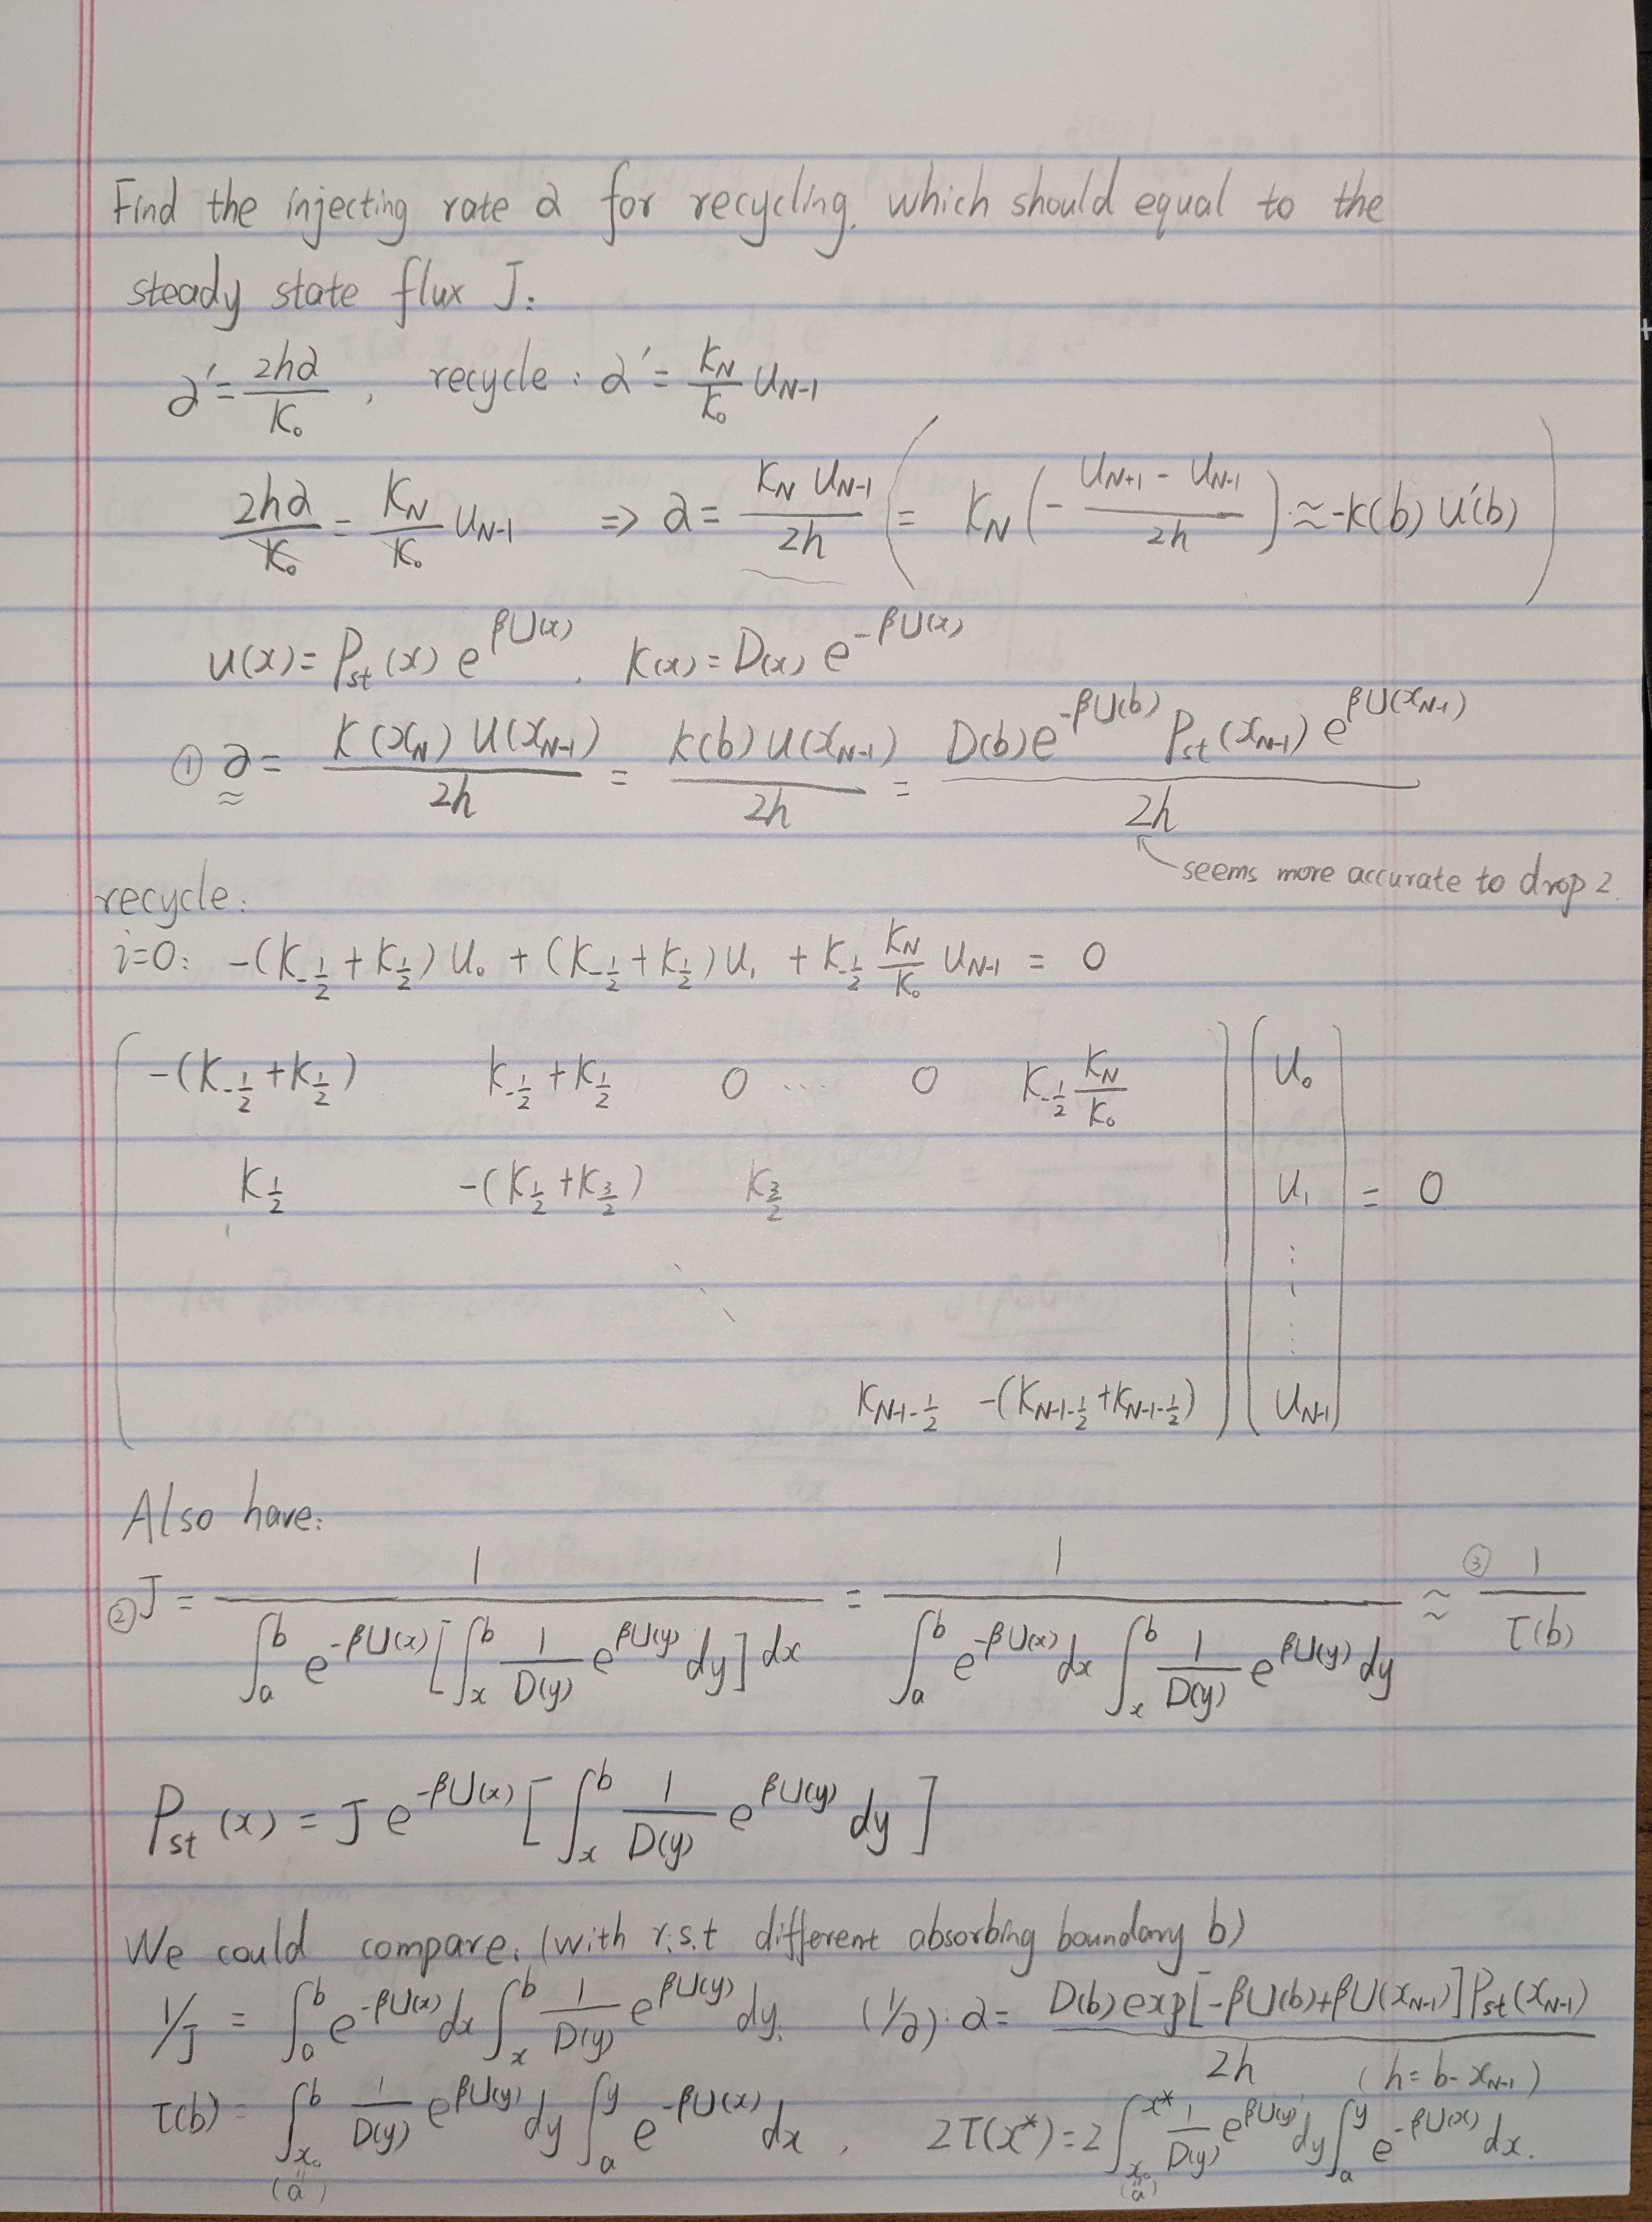 Find the injecting rate α for recycling, which should equal to the
steady state flux J.
α' = 2hα / K₀ , recycle : α' = K_N / K₀ u_{N-1}
2hα / K₀ = K_N / K₀ u_{N-1} ⇒ α = K_N u_{N-1} / 2h ( = K_N ( - (u_{N+1} - u_{N-1}) / 2h ) ≈ -K(b) u'(b) )
u(x) = P_st(x) e^{βU(x)} , K(x) = D(x) e^{-βU(x)}
① α = K(x_N) u(x_{N-1}) / 2h = K(b) u(x_{N-1}) / 2h = D(b) e^{-βU(b)} P_st(x_{N-1}) e^{βU(x_{N-1})} / 2h
≈
seems more accurate to drop 2.
recycle:
i=0: -(K_{-1/2} + K_{1/2}) u₀ + (K_{-1/2} + K_{1/2}) u₁ + K_{-1/2} K_N / K₀ u_{N-1} = 0
-(K_{-1/2} + K_{1/2}) K_{-1/2} + K_{1/2} 0 ··· 0 K_{-1/2} K_N / K₀ u₀
K_{1/2} -(K_{1/2} + K_{3/2}) K_{3/2} u₁ = 0
K_{N-1-1/2} -(K_{N-1-1/2} + K_{N-1-1/2}) u_{N-1}
Also have:
② J = 1 / ∫_a^b e^{-βU(x)} [ ∫_x^b 1/D(y) e^{βU(y)} dy ] dx = 1 / ∫_a^b e^{-βU(x)} dx ∫_x^b 1/D(y) e^{βU(y)} dy ≈ ③ 1 / τ(b)
P_st(x) = J e^{-βU(x)} [ ∫_x^b 1/D(y) e^{βU(y)} dy ]
We could compare. (with r.s.t different absorbing boundary b)
1/J = ∫_a^b e^{-βU(x)} dx ∫_x^b 1/D(y) e^{βU(y)} dy. (1/α) · α = D(b) exp[-βU(b)+βU(x_{N-1})] P_st(x_{N-1}) / 2h
(h = b - x_{N-1})
τ(b) = ∫_{x₀}^b 1/D(y) e^{βU(y)} dy ∫_a^y e^{-βU(x)} dx , 2τ(x*) = 2 ∫_{x₀}^{x*} 1/D(y) e^{βU(y)} dy ∫_a^y e^{-βU(x)} dx.
(a) (a)